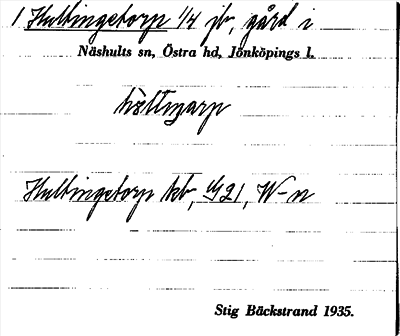 1 Hultingetorp 1/4 jb, gård i
Näshults sn, Östra hd, Jönköpings l.
Hultingetorp kb, W-n
Stig Bäckstrand 1935.